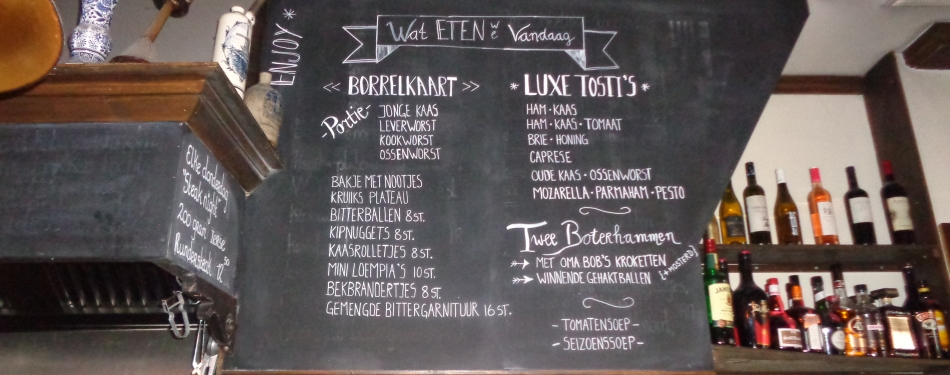 ENJOY *
Wat ETEN WE Vandaag
<< BORRELKAART >>
Portie
JONGE KAAS
LEVERWORST
KOOKWORST
OSSENWORST
BAKJE MET NOOTJES
KRUIKS PLATEAU
BITTERBALLEN 8 ST.
KIPNUGGETS 8 ST.
KAASROLLETJES 8 ST.
MINI LOEMPIA'S 10 ST.
BEKBRANDERTJES 8 ST.
GEMENGDE BITTERGARNITUUR 16 ST.
* LUXE TOSTI'S *
HAM · KAAS
HAM · KAAS · TOMAAT
BRIE · HONING
CAPRESE
OUDE KAAS · OSSENWORST
MOZARELLA · PARMAHAM · PESTO
Twee Boterhammen
MET OMA BOB'S KROKETTEN
WINNENDE GEHAKTBALLEN (+MOSTERD)
- TOMATENSOEP -
- SEIZOENSSOEP -
Elke donderdag
"Steak night"
200 gram
Rundersteak 12,50